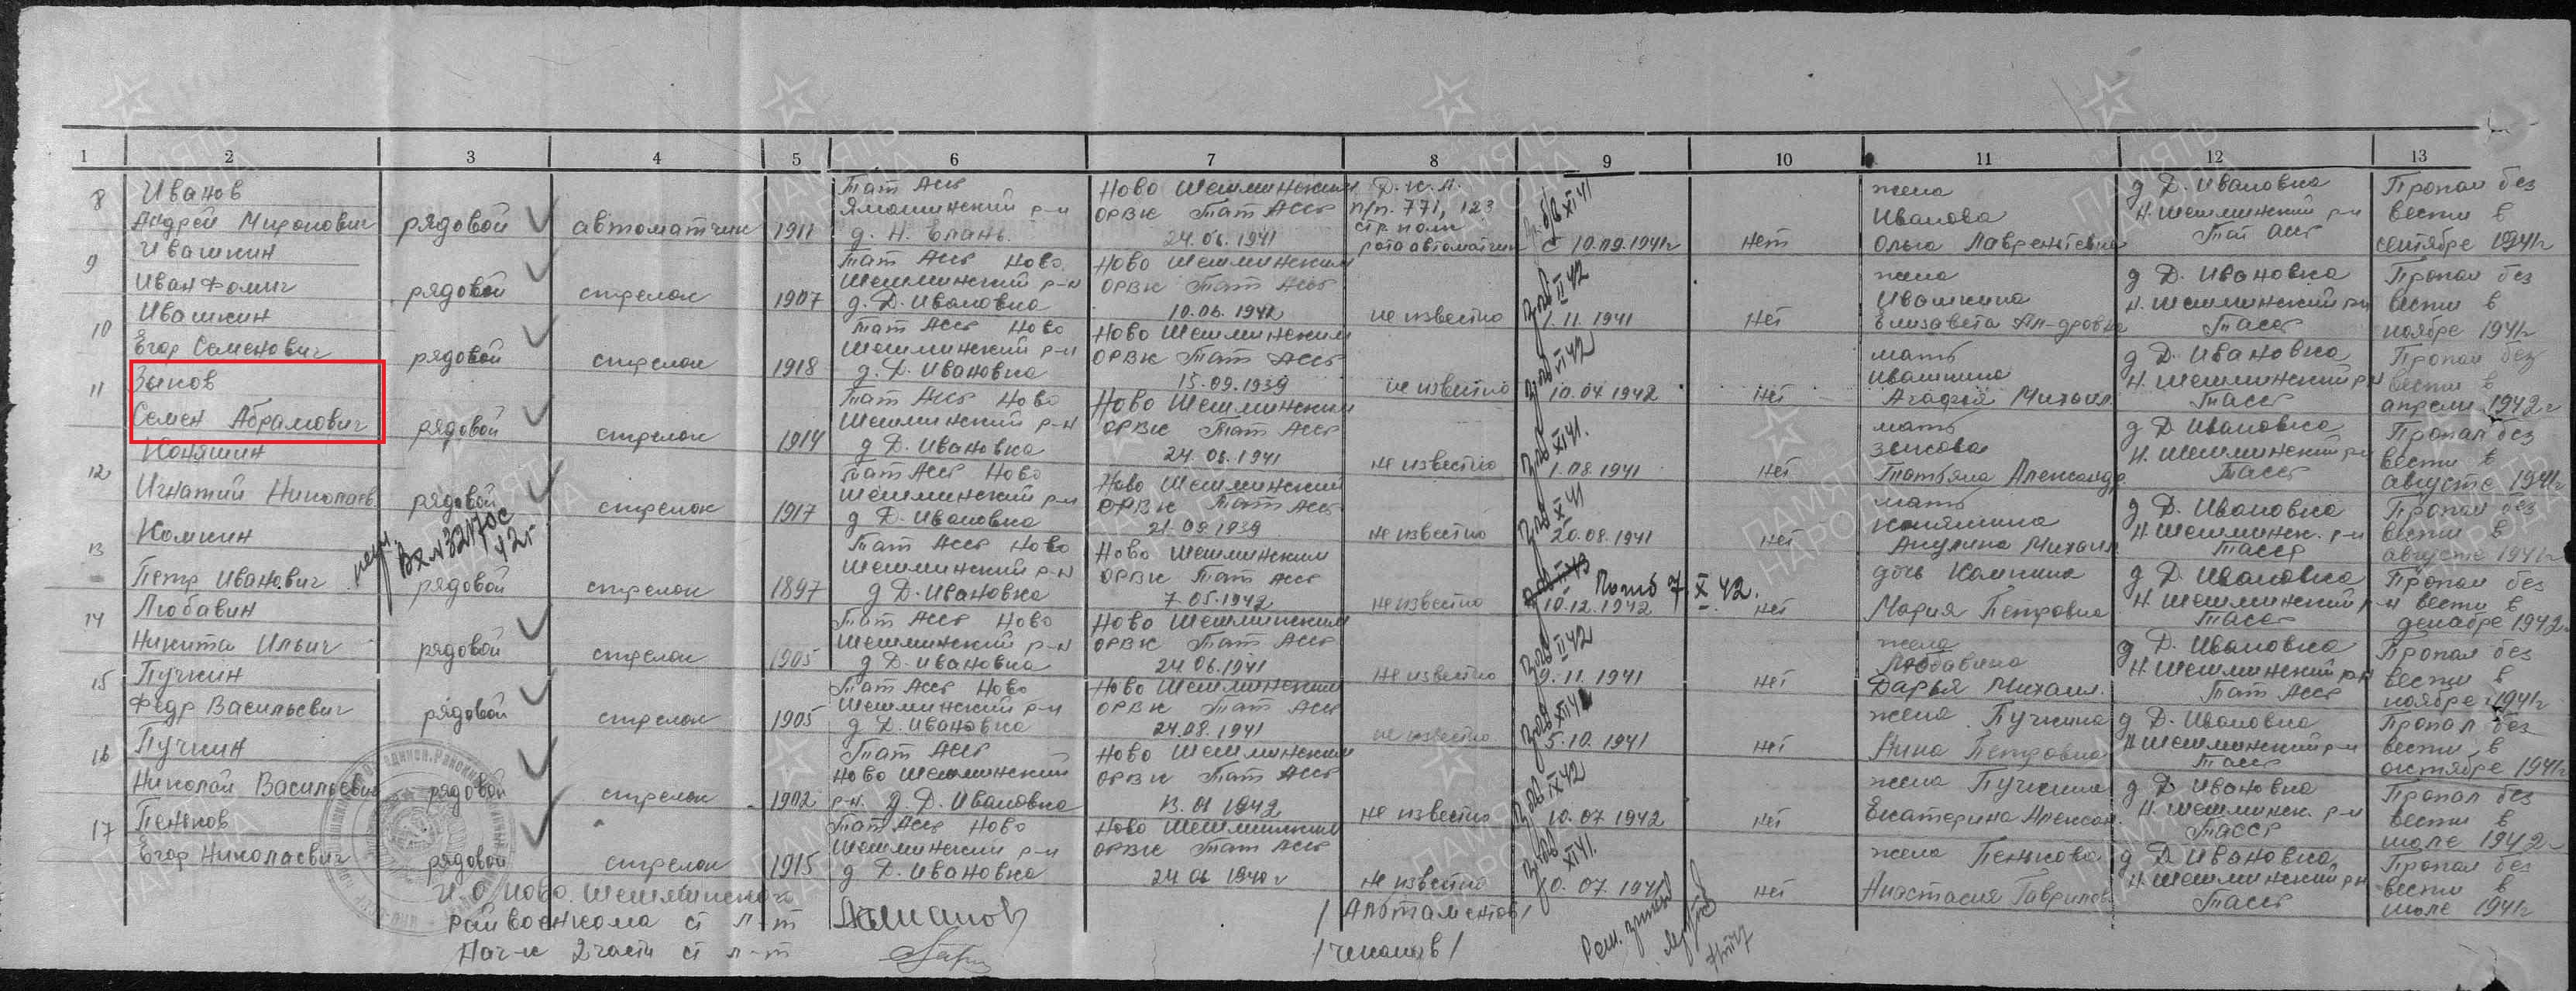 1 2 3 4 5 6 7 8 9 10 11 12 13
8 Иванов
Андрей Миронович
рядовой
автоматчик
1911
Тат Асср
Ямашинский р-н
д. Н. Елань
Ново Шешминским
ОРВК Тат АССР
24.06.1941
Д.К.А.
п/п. 771, 123
стр. полк
рота автоматчик
10.09.1941г
нет
жена
Иванова
Ольга Лаврентьевна
д Д. Ивановка
Н. Шешминский р-н
Тат Асср
Пропал без
вести в
сентябре 1941г
9 Ивашкин
Иван Фомич
рядовой
стрелок
1907
Тат Асср Ново
Шешминский р-н
д. Д. Ивановка
Ново Шешминским
ОРВК Тат АССР
10.06.1941
не известно
1.11.1941
нет
жена
Ивашкина
Елизавета Ал-дровна
д Д. Ивановка
Н. Шешминский р-н
Тасср
Пропал без
вести в
ноябре 1941г
10 Ивашкин
Егор Семенович
рядовой
стрелок
1918
Тат Асср Ново
Шешминский р-н
д. Д. Ивановка
Ново Шешминским
ОРВК Тат АССР
15.09.1939
не известно
10.04.1942
нет
мать
Ивашкина
Агафья Михайл.
д Д. Ивановка
Н. Шешминский р-н
Тасср
Пропал без
вести в
апреле 1942г
11 Зыков
Семен Абрамович
рядовой
стрелок
1914
Тат Асср Ново
Шешминский р-н
д Д. Ивановка
Ново Шешминским
ОРВК Тат АССР
24.06.1941
не известно
1.08.1941
нет
мать
Зыкова
Татьяна Александр.
д Д. Ивановка
Н. Шешминский р-н
Тасср
Пропал без
вести в
августе 1941г
12 Коняшин
Игнатий Николаев
рядовой
стрелок
1917
Тат Асср Ново
Шешминский р-н
д Д. Ивановка
Ново Шешминский
ОРВК Тат АССР
21.09.1939
не известно
20.08.1941
нет
мать
Коняшина
Акулина Михаил.
д Д. Ивановка
Н. Шешминск. р-н
Тасср
Пропал без
вести в
августе 1941г
13 Комкин
Петр Иванович
Вх № 32170с
42г
рядовой
стрелок
1897
Тат Асср Ново
Шешминский р-н
д Д. Ивановка
Ново Шешминским
ОРВК Тат АССР
7.05.1942
не известно
10.12.1942
Погиб 7.X.42.
нет
дочь Комкина
Мария Петровна
д Д. Ивановка
Н. Шешминский р-н
Тасср
Пропал без
вести в
декабре 1942г
14 Любавин
Никита Ильич
рядовой
стрелок
1905
Тат Асср Ново
Шешминский р-н
д Д. Ивановка
Ново Шешминским
ОРВК Тат АССР
24.06.1941
не известно
9.11.1941
нет
жена
Любавина
Дарья Михаил.
д Д. Ивановка
Н. Шешминский р-н
Тат Асср
Пропал без
вести в
ноябре 1941г
15 Пучкин
Федр Васильевич
рядовой
стрелок
1905
Тат Асср Ново
Шешминский р-н
д Д. Ивановка
Ново Шешминским
ОРВК Тат АССР
24.08.1941
не известно
5.10.1941
нет
жена Пучкина
Нина Петровна
д Д. Ивановка
Н Шешминский р-н
Тасср
Пропал без
вести в
октябре 1941г
16 Пучкин
Николай Васильевич
рядовой
стрелок
1902
Тат Асср
Ново Шешминский
р-н. д. Д. Ивановка
Ново Шешминским
ОРВК Тат АССР
13.01 1942
не известно
10.07 1942
нет
жена Пучкина
Екатерина Алексан.
д Д. Ивановка
Н. Шешминск. р-н
Тасср
Пропал без
вести в
июле 1942г
17 Пеньков
Егор Николаевич
рядовой
стрелок
1915
Тат Асср Ново
Шешминский р-н
д Д. Ивановка
Ново Шешминским
ОРВК Тат АССР
не известно
0.07.1941
нет
жена Пенькова
Анастасия Гаврилов.
д Д Ивановка
Н. Шешминский р-н
Тасср
Пропал без
вести в
июле 1941г
И.О. Ново. Шешминского
Райвоенкома ст л-т
Нач-к 2 части ст л-т
ПАМЯТЬ
НАРОДА